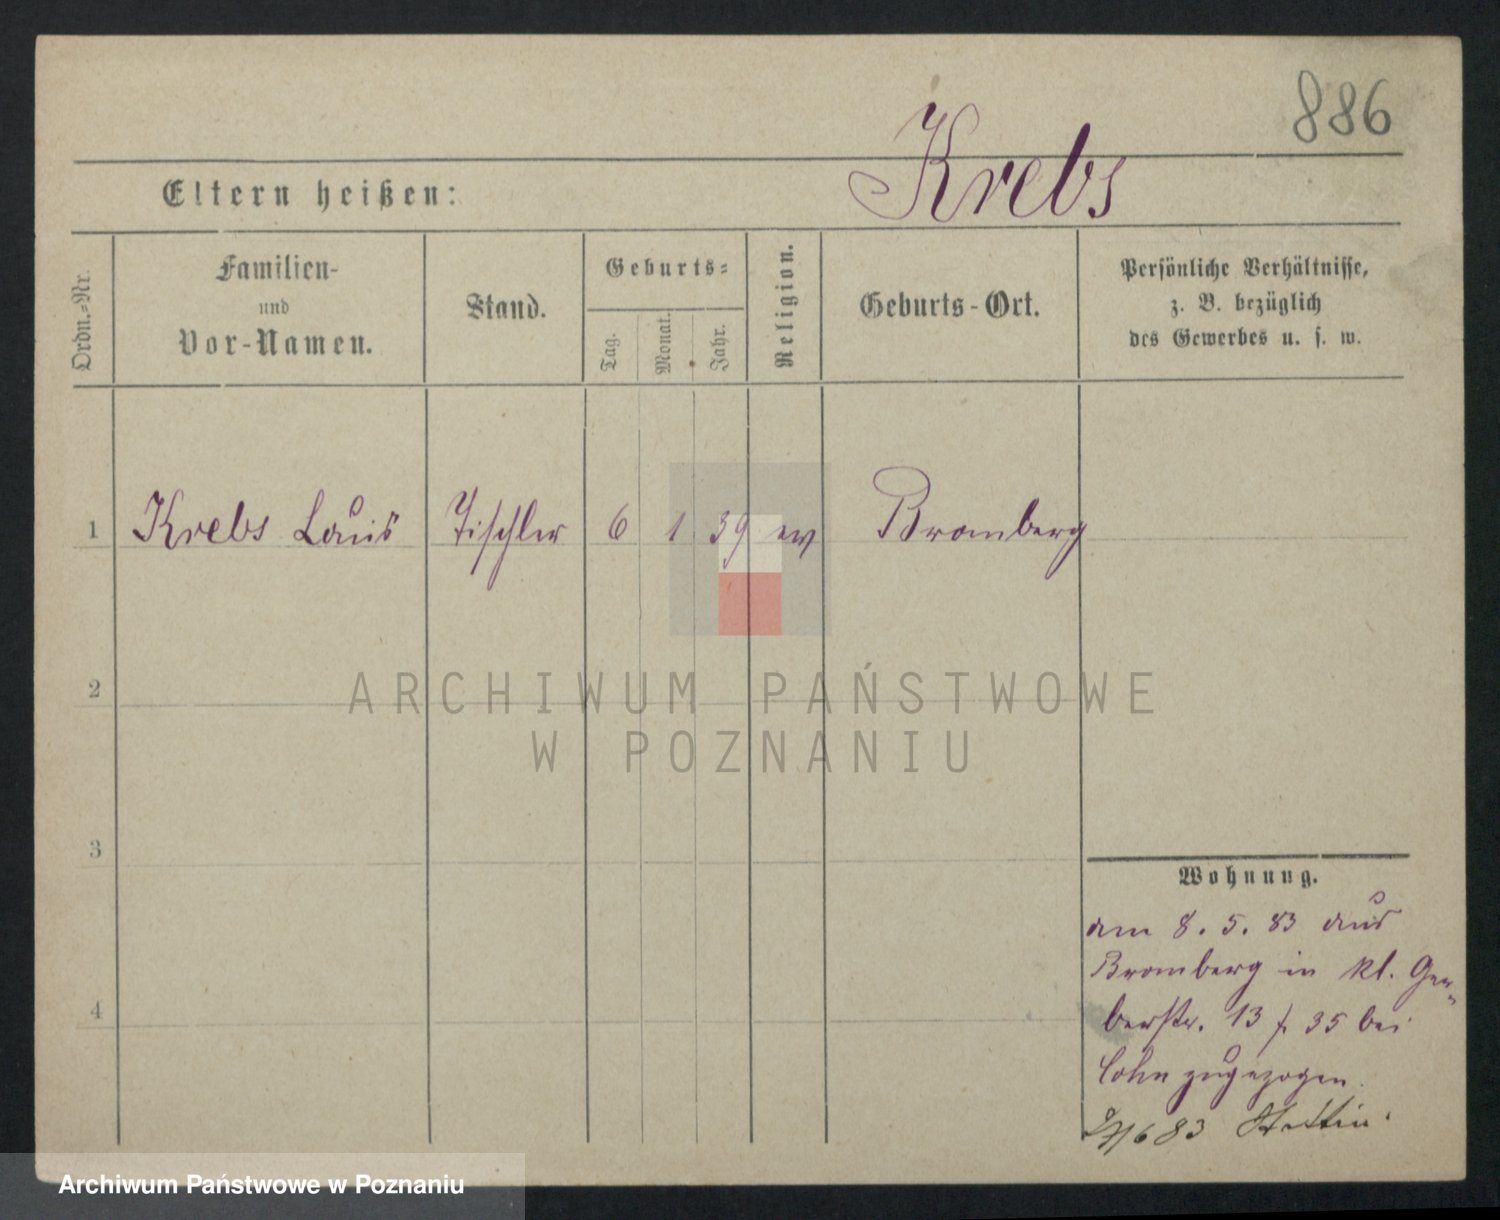 886
Krebs
Eltern heißen:
Ordn.-Nr.
Familien-
und
Vor-Namen.
Stand.
Geburts-
Tag.
Monat.
Jahr.
Religion.
Geburts-Ort.
Persönliche Verhältnisse,
z. B. bezüglich
des Gewerbes u. s. w.
1 Krebs Louis Tischler 6 1 39 ev Bromberg
2
3
4
Wohnung.
am 8. 5. 83 aus
Bromberg in kl. Ger-
berstr. 13 f. 35 bei
Cohn zugezogen.
6 83 Stettin.
ARCHIWUM PAŃSTWOWE
W POZNANIU
Archiwum Państwowe w Poznaniu